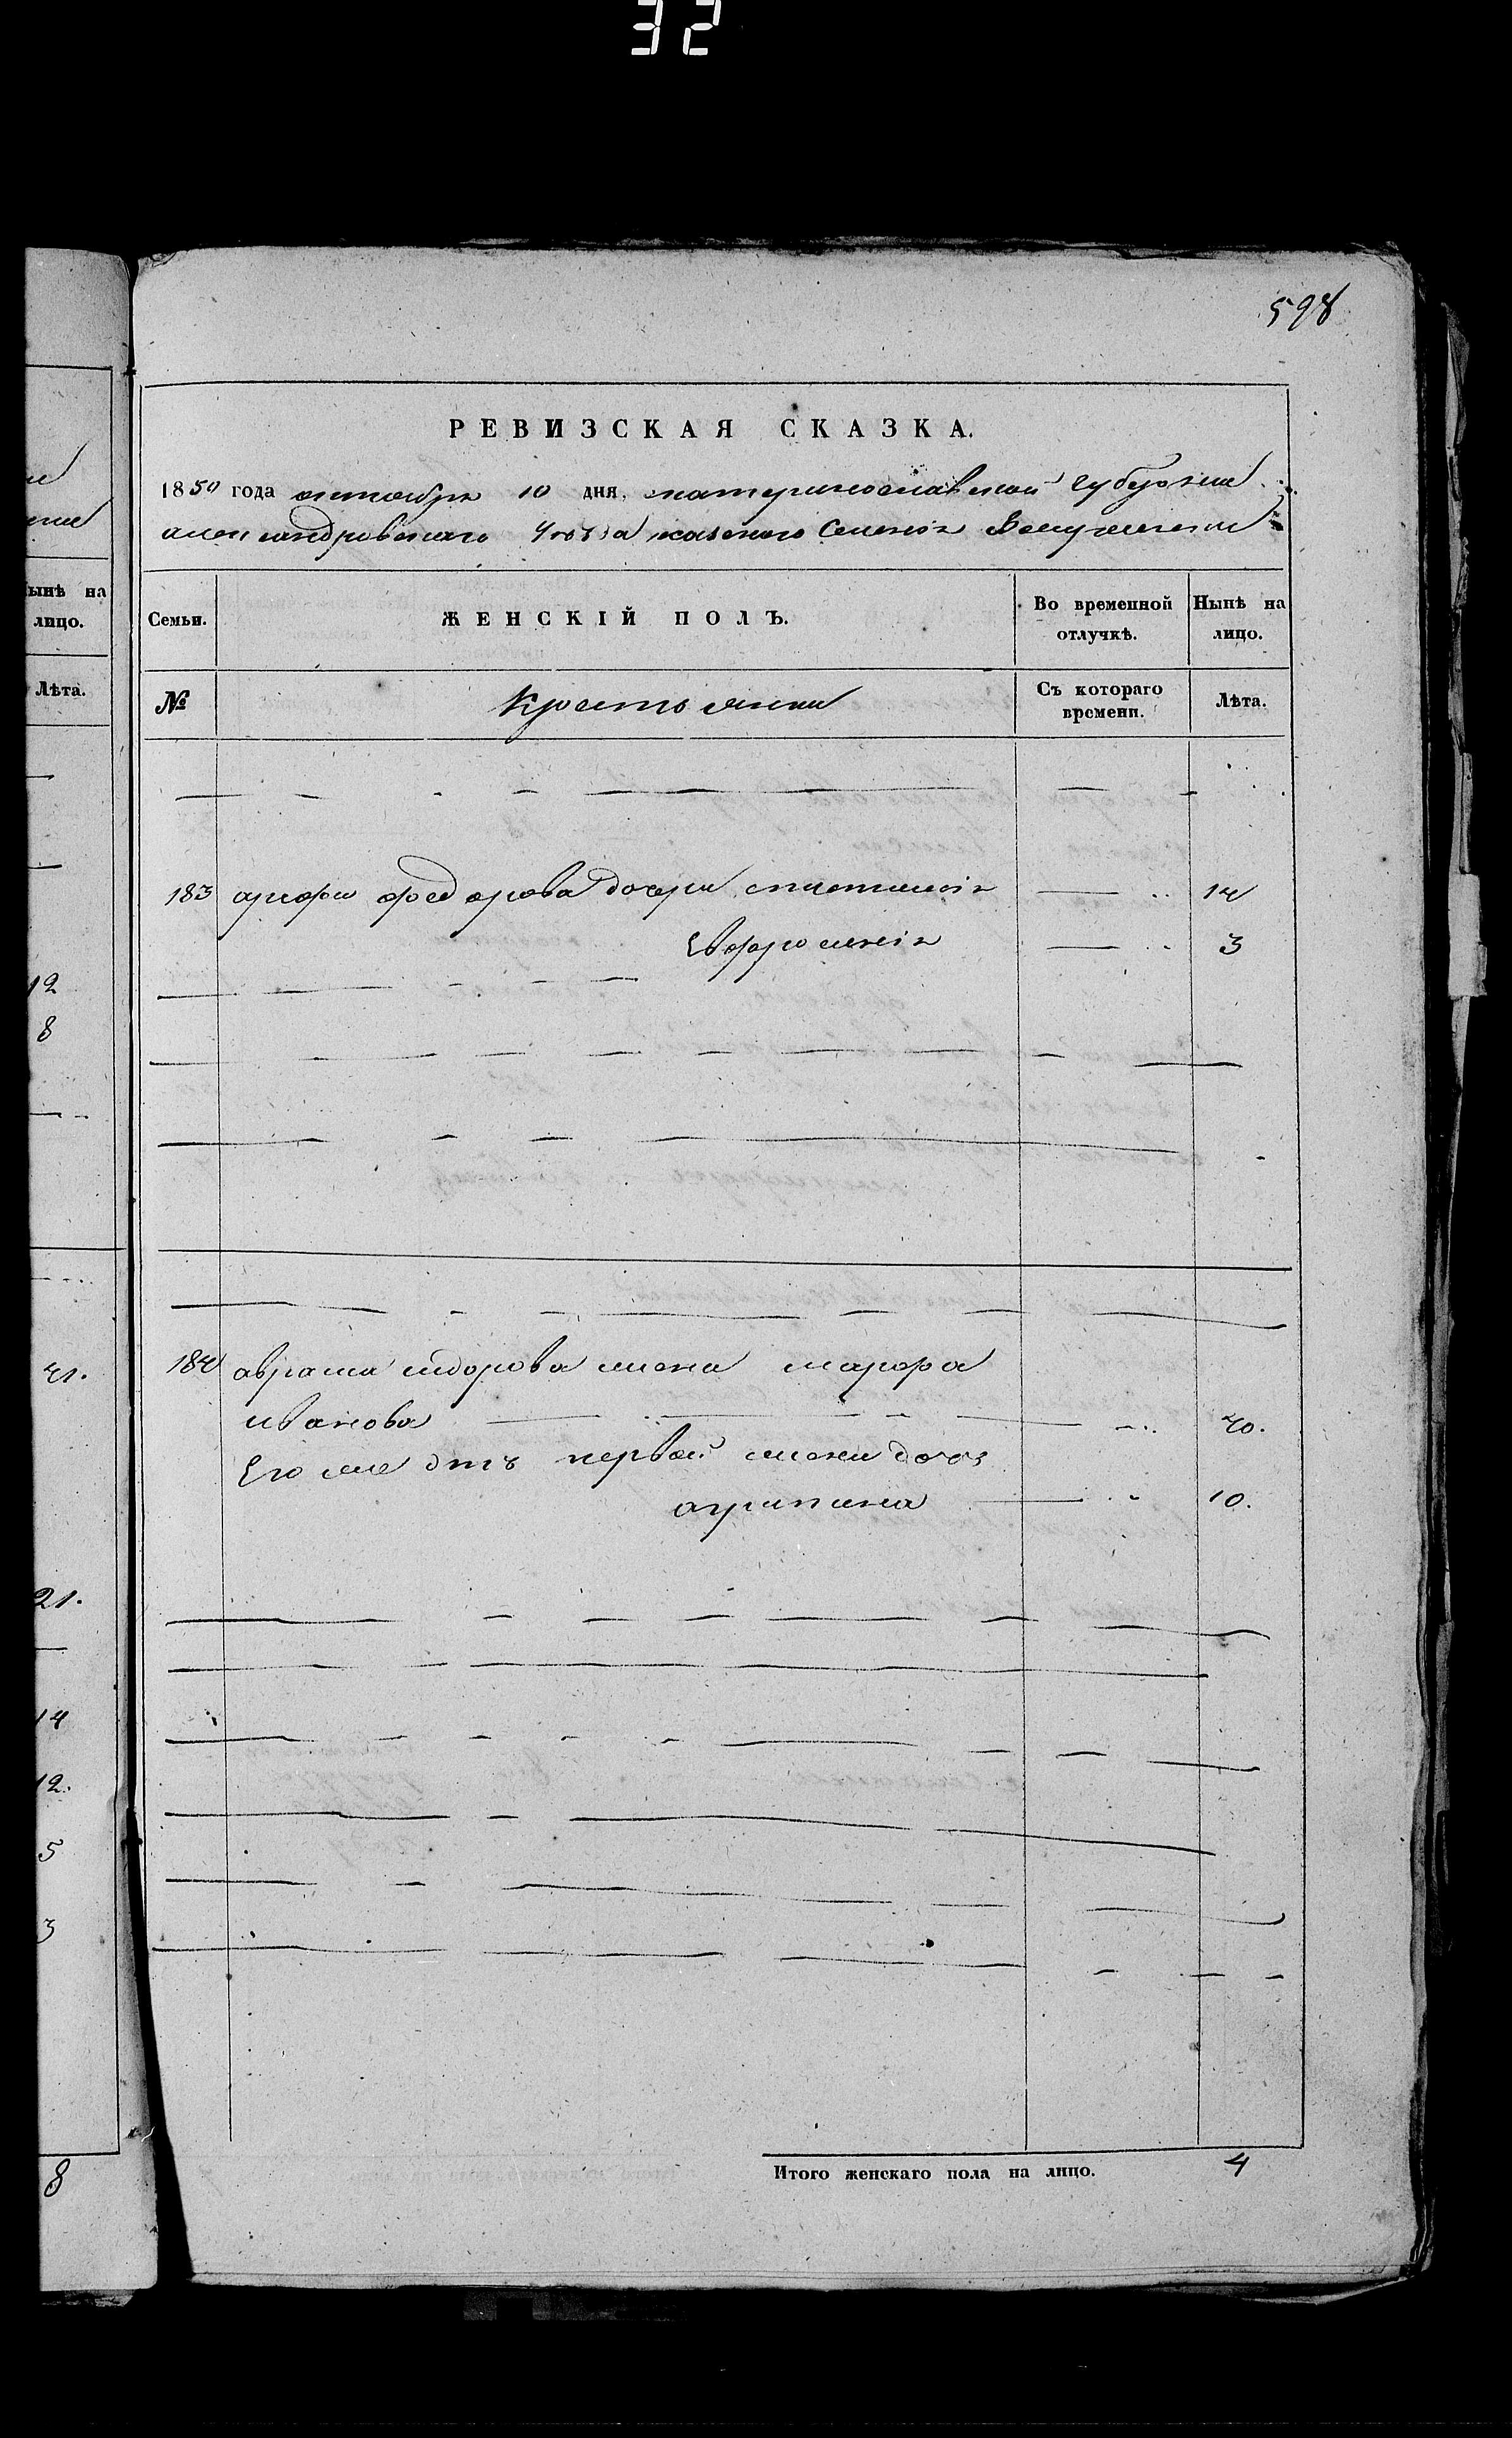 32
598
РЕВИЗСКАЯ СКАЗКА.
1850 года октября 10 дня, екатеринославской губернии
александровскаго уѣзда казеного селенія
Семьи. ЖЕНСКІЙ ПОЛЪ. Во временной отлучкѣ. Нынѣ на лицо.
№ Крестьянки Съ котораго времени. Лѣта.
183 федорова дочери 14
Евфросинія 3
184 аврама сидорова жена марфа
иванова 40.
Его же отъ первой жены дочь
агрипина 10.
Итого женскаго пола на лицо. 4
ынѣ на
лицо.
Лѣта.
12
8
41.
21.
14
12.
5
3
8